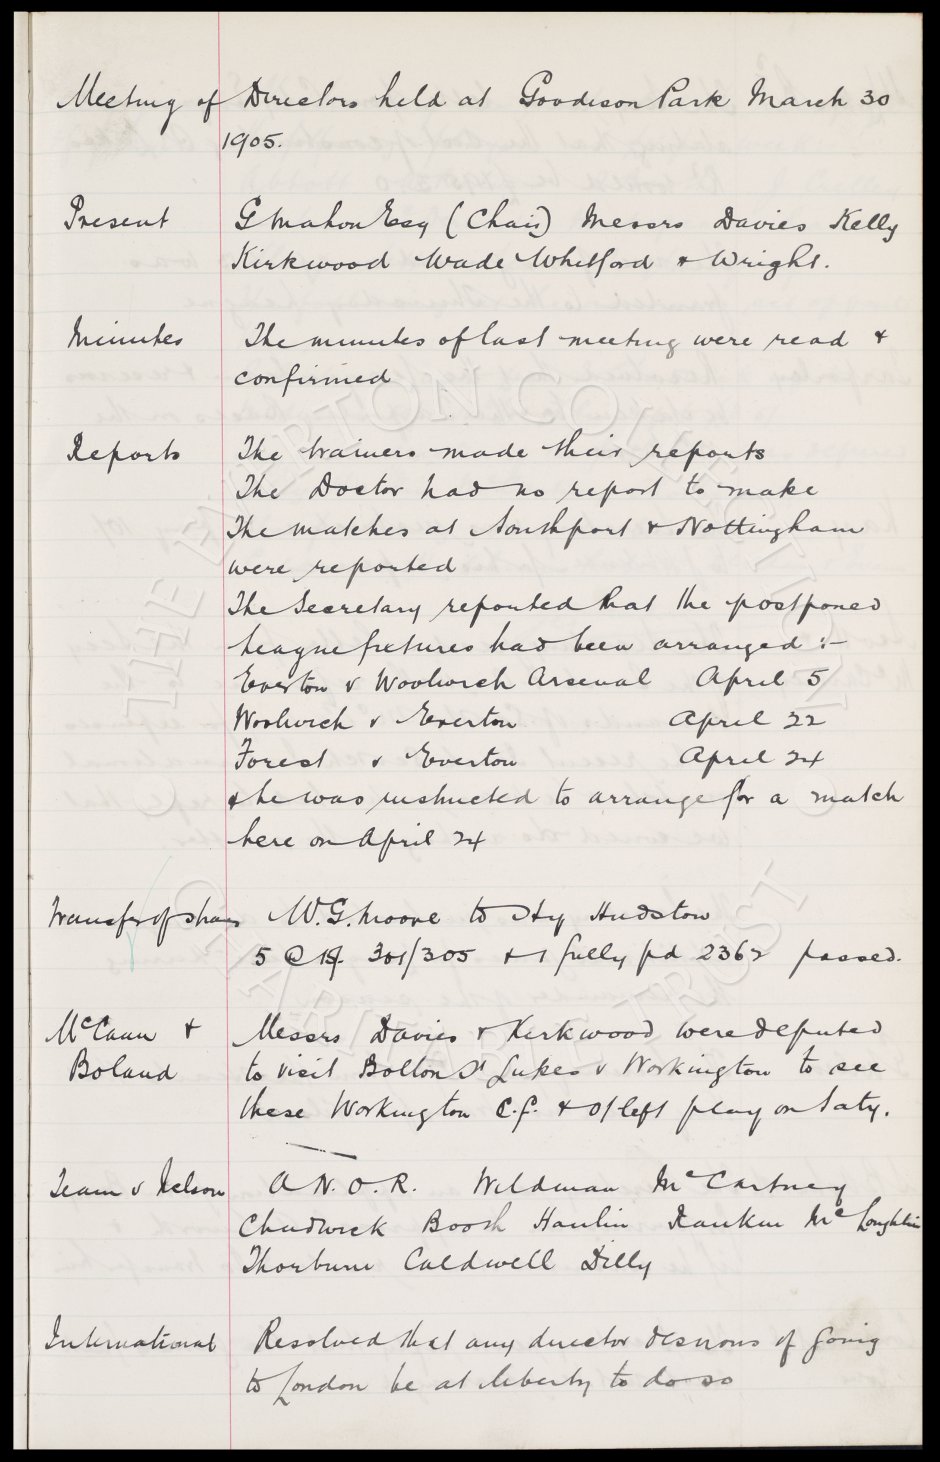 Meeting of Directors held at Goodison Park March 30
1905.
Present G Mahon Esq (Chair) Messrs Davies Kelly
Kirkwood Wade Whitford & Wright.
Minutes The minutes of last meeting were read &
confirmed
Reports The trainers made their reports
The Doctor had no report to make
The matches at Southport & Nottingham
were reported
The Secretary reported that the postponed
league fixtures had been arranged :-
Everton v Woolwich Arsenal April 5
Woolwich v Everton April 22
Forest v Everton April 24
& he was instructed to arrange for a match
here on April 24
Transfer of shares W.G. Moore to Hy Hudston
5 @ 301/305 & 1 fully pd 2362 passed.
McCann & Messrs Davies & Kirkwood were deputed
Boland to visit Bolton St Lukes v Workington to see
these Workington C.f. & o/left play on Saty.
Team v Nelson A N. O. R. Wildman McCartney
Chadwick Booth Hanlin Rankin McLoughlin
Thorburn Caldwell Dilly
International Resolved that any director desirous of going
to London be at liberty to do so
THE EVERTON COLLECTION
CHARITABLE TRUST